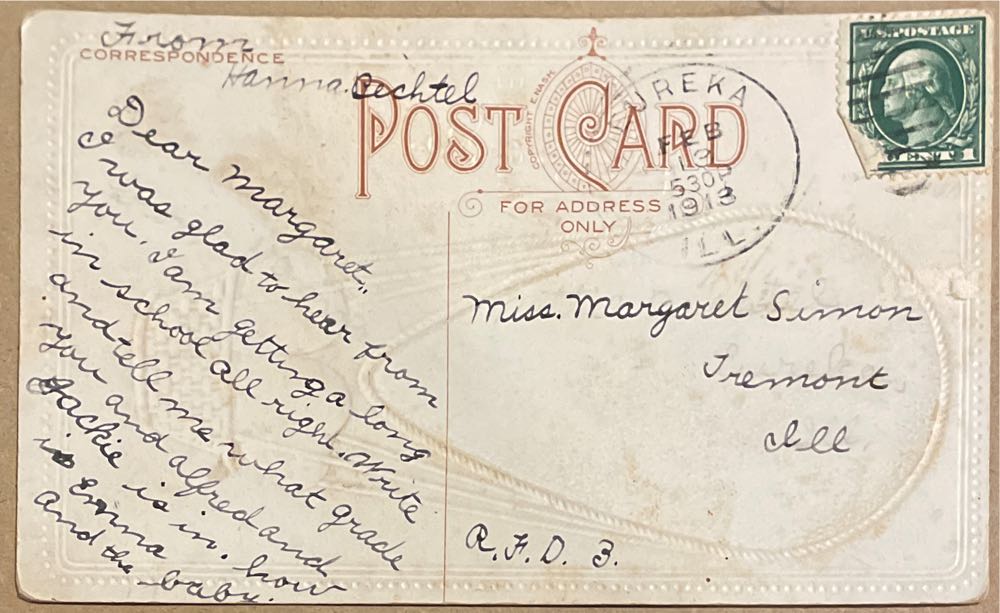 From
Hanna Bechtel
CORRESPONDENCE
POST CARD
COPYRIGHT E NASH
FOR ADDRESS
ONLY
EUREKA
FEB
530P
1913
ILL.
U.S. POSTAGE
1
Dear Margaret,,
I was glad to hear from
you. I am getting a long
in school all right. Write
and tell me what grade
you and alfred and
Jackie is in. how
is Emma
and the baby.
Miss. Margaret Simon
Tremont
Ill
R. F. D. 3.